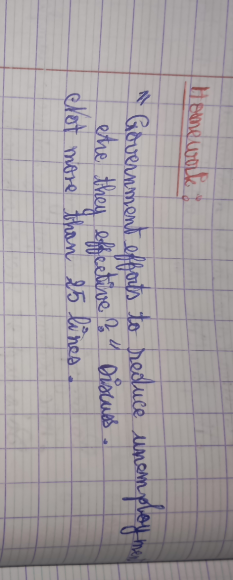 Homework:
" Government efforts to reduce unemployment
are they effective? " Discuss.
Not more than 25 lines.